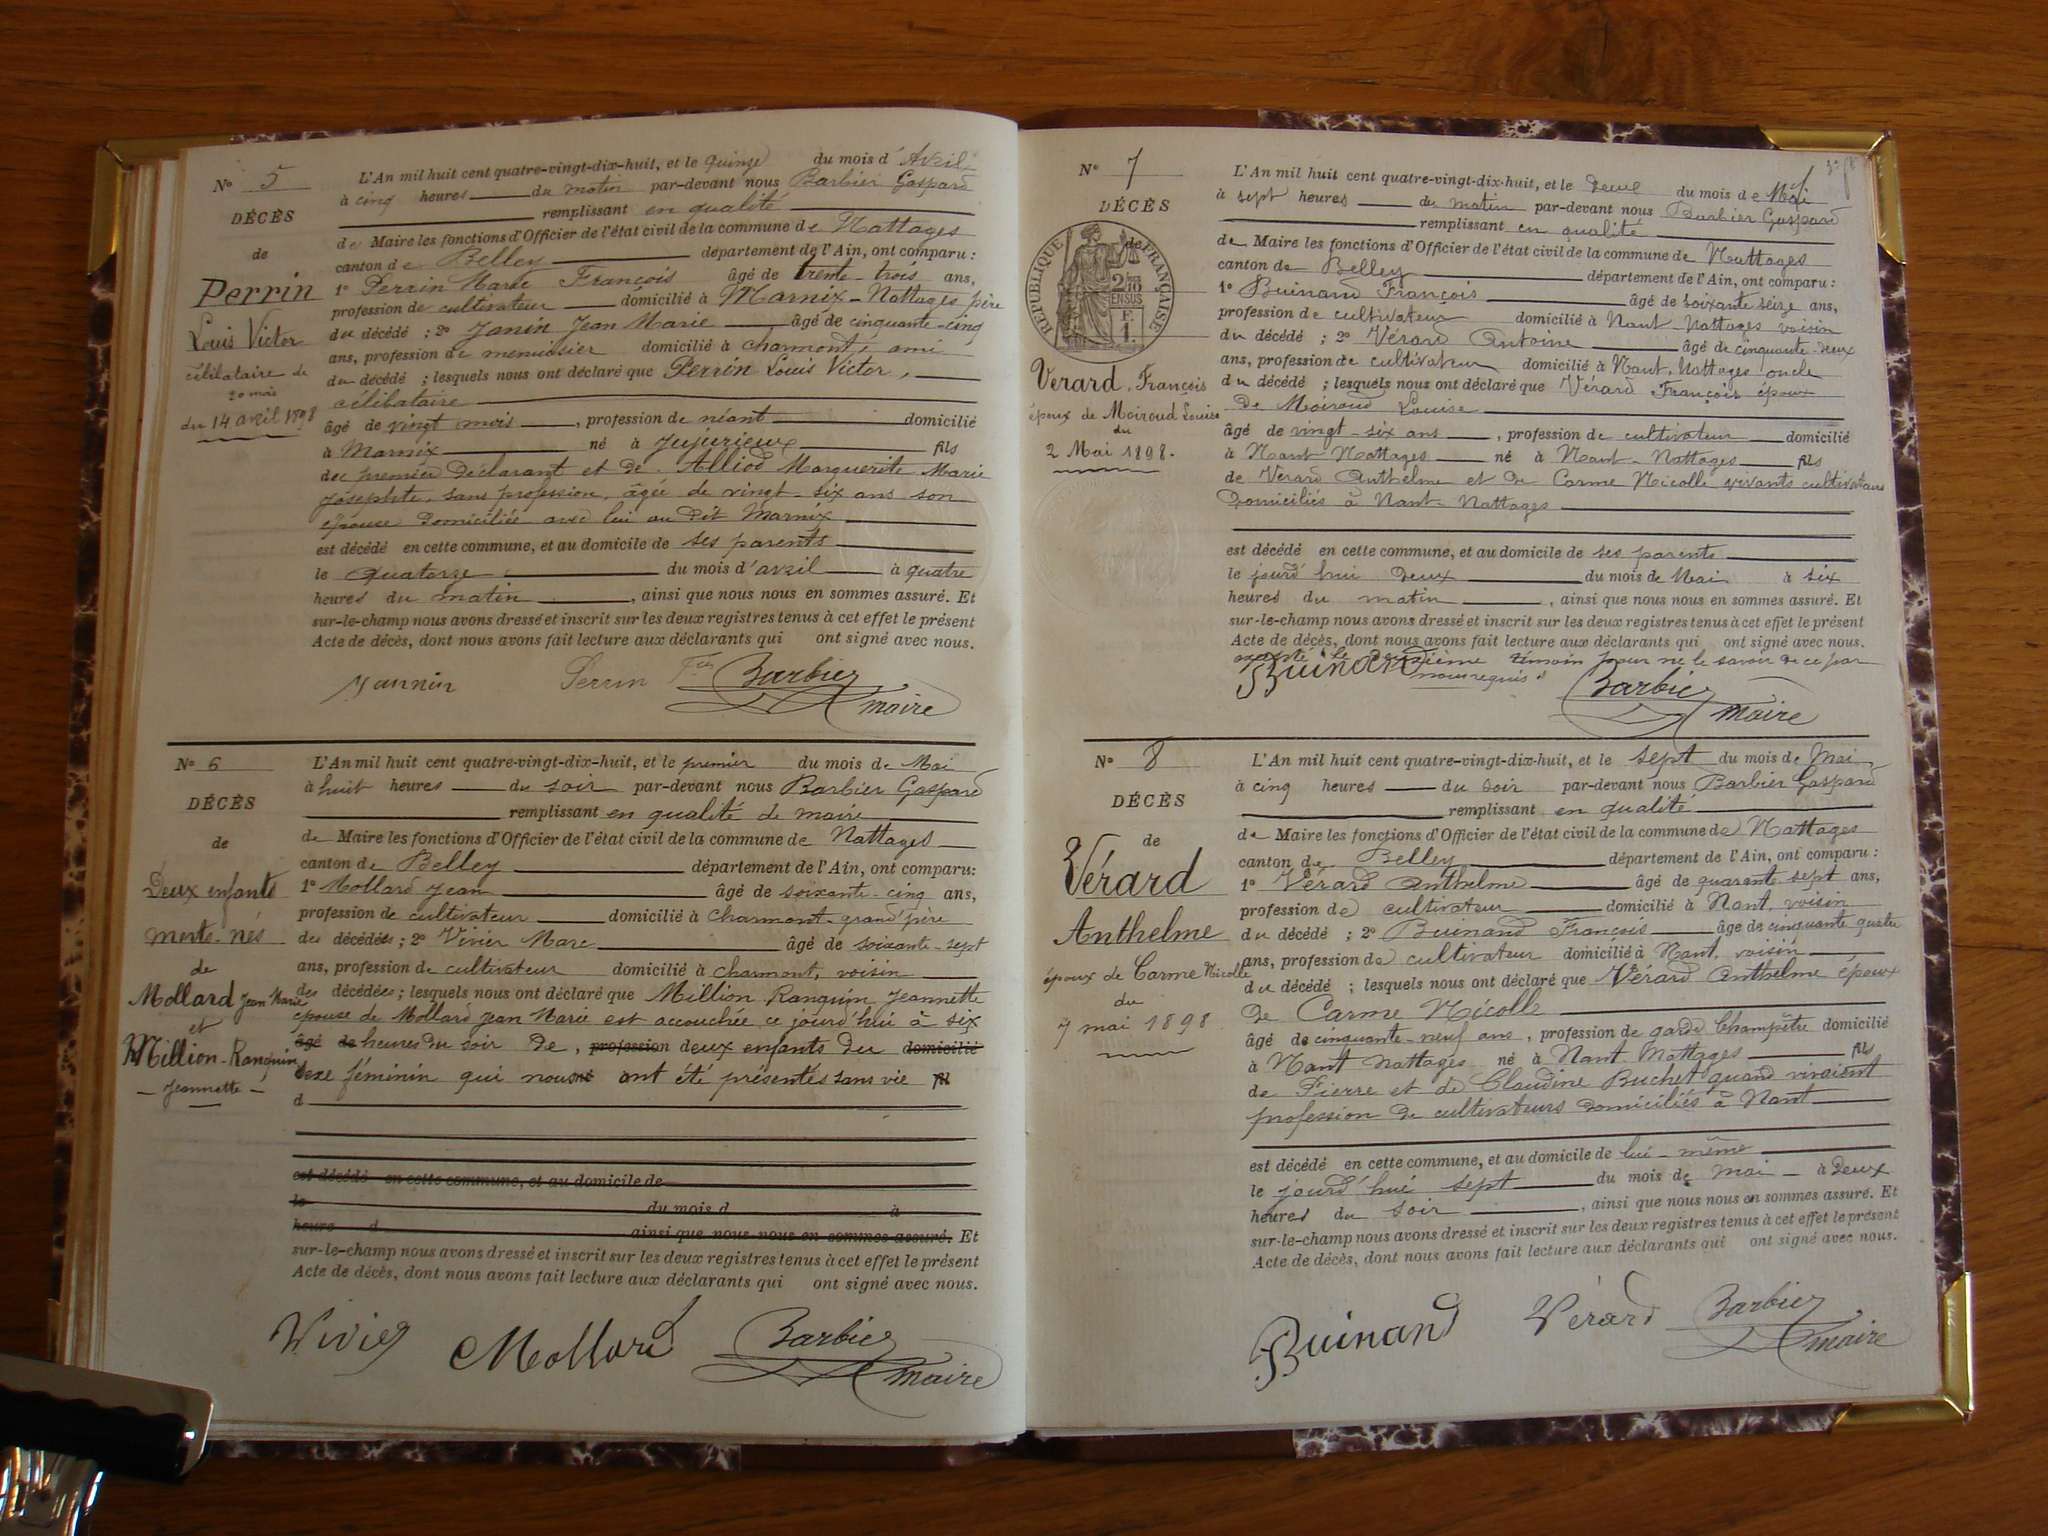 N° 5
DÉCÈS
de
Perrin
Louis Victor
célibataire de
20 mois
du 14 avril 1898
L'An mil huit cent quatre-vingt-dix-huit, et le quinze du mois d'Avril
à cinq heures du matin par-devant nous Barbier Gaspard
remplissant en qualité
de Maire les fonctions d'Officier de l'état civil de la commune de Nattages
canton de Belley département de l'Ain, ont comparu :
1° Perrin Marie François âgé de trente-trois ans,
profession de cultivateur domicilié à Marnix-Nattages père
du décédé ; 2° Janin Jean Marie âgé de cinquante-cinq
ans, profession de menuisier domicilié à charmont, ami
du décédé ; lesquels nous ont déclaré que Perrin Louis Victor,
célibataire
âgé de vingt mois, profession de néant domicilié
à Marnix né à Jujurieux fils
du premier déclarant et de Alliod Marguerite Marie
Josephte, sans profession, âgée de vingt-six ans son
épouse domiciliée avec lui au dit Marnix
est décédé en cette commune, et au domicile de ses parents
le quatorze du mois d'avril à quatre
heures du matin, ainsi que nous nous en sommes assuré. Et
sur-le-champ nous avons dressé et inscrit sur les deux registres tenus à cet effet le présent
Acte de décès, dont nous avons fait lecture aux déclarants qui ont signé avec nous.
Perrin Barbier
maire
N° 6
DÉCÈS
de
Deux enfants
morts-nés
de
Mollard Jean Marie
et
Million-Ranquin
Jeannette
L'An mil huit cent quatre-vingt-dix-huit, et le premier du mois de Mai
à huit heures du soir par-devant nous Barbier Gaspard
remplissant en qualité de maire
de Maire les fonctions d'Officier de l'état civil de la commune de Nattages
canton de Belley département de l'Ain, ont comparu :
1° Mollard Jean âgé de soixante-cinq ans,
profession de cultivateur domicilié à charmont-grand père
des décédées ; 2° Vivier Marc âgé de soixante-sept
ans, profession de cultivateur domicilié à charmont, voisin
des décédées ; lesquels nous ont déclaré que Million Ranquin Jeannette
épouse de Mollard Jean Marie est accouchée ce jourd'hui à six
âgé de heures du soir de, profession deux enfants du domicilié
sexe féminin qui nous né ont été présentés sans vie fil
d
est décédé en cette commune, et au domicile de
le du mois d à
heure d ainsi que nous nous en sommes assuré. Et
sur-le-champ nous avons dressé et inscrit sur les deux registres tenus à cet effet le présent
Acte de décès, dont nous avons fait lecture aux déclarants qui ont signé avec nous.
Vivier Mollard Barbier
maire
N° 7
DÉCÈS
de
RÉPUBLIQUE FRANÇAISE
2/10
EN SUS
F.
1.
Verard, François
époux de Moiroud Louise
du
2 Mai 1898.
L'An mil huit cent quatre-vingt-dix-huit, et le deux du mois de Mai
à sept heures du matin par-devant nous Barbier Gaspard
remplissant en qualité
de Maire les fonctions d'Officier de l'état civil de la commune de Nattages
canton de Belley département de l'Ain, ont comparu :
1° Buinand François âgé de soixante seize ans,
profession de cultivateur domicilié à Nant-Nattages voisin
du décédé ; 2° Vérard Antoine âgé de cinquante-deux
ans, profession de cultivateur domicilié à Nant-Nattages oncle
du décédé ; lesquels nous ont déclaré que Vérard François époux
de Moiroud Louise
âgé de vingt-six ans, profession de cultivateur domicilié
à Nant-Nattages né à Nant-Nattages fils
de Vérard Anthelme et de Carme Nicolle vivants cultivateurs
domiciliés à Nant-Nattages
est décédé en cette commune, et au domicile de ses parents
le jourd'hui deux du mois de Mai à six
heures du matin, ainsi que nous nous en sommes assuré. Et
sur-le-champ nous avons dressé et inscrit sur les deux registres tenus à cet effet le présent
Acte de décès, dont nous avons fait lecture aux déclarants qui ont signé avec nous.
excepté le deuxième témoin pour ne le savoir de ce par
nous requis
Buinand Barbier
maire
N° 8
DÉCÈS
de
Vérard
Anthelme
époux de Carme Nicolle
du
7 mai 1898
L'An mil huit cent quatre-vingt-dix-huit, et le sept du mois de Mai
à cinq heures du soir par-devant nous Barbier Gaspard
remplissant en qualité
de Maire les fonctions d'Officier de l'état civil de la commune de Nattages
canton de Belley département de l'Ain, ont comparu :
1° Vérard Anthelme âgé de quarante sept ans,
profession de cultivateur domicilié à Nant, voisin
du décédé ; 2° Buinand François âgé de cinquante quatre
ans, profession de cultivateur domicilié à Nant, voisin
du décédé ; lesquels nous ont déclaré que Vérard Anthelme époux
de Carme Nicolle
âgé de cinquante-neuf ans, profession de garde Champêtre domicilié
à Nant Nattages né à Nant-Nattages fils
de Pierre et de Claudine Buchet quand vivaient
profession de cultivateurs domiciliés à Nant
est décédé en cette commune, et au domicile de lui-même
le jourd'hui sept du mois de mai à deux
heures du soir, ainsi que nous nous en sommes assuré. Et
sur-le-champ nous avons dressé et inscrit sur les deux registres tenus à cet effet le présent
Acte de décès, dont nous avons fait lecture aux déclarants qui ont signé avec nous.
Buinand Vérard Barbier
maire